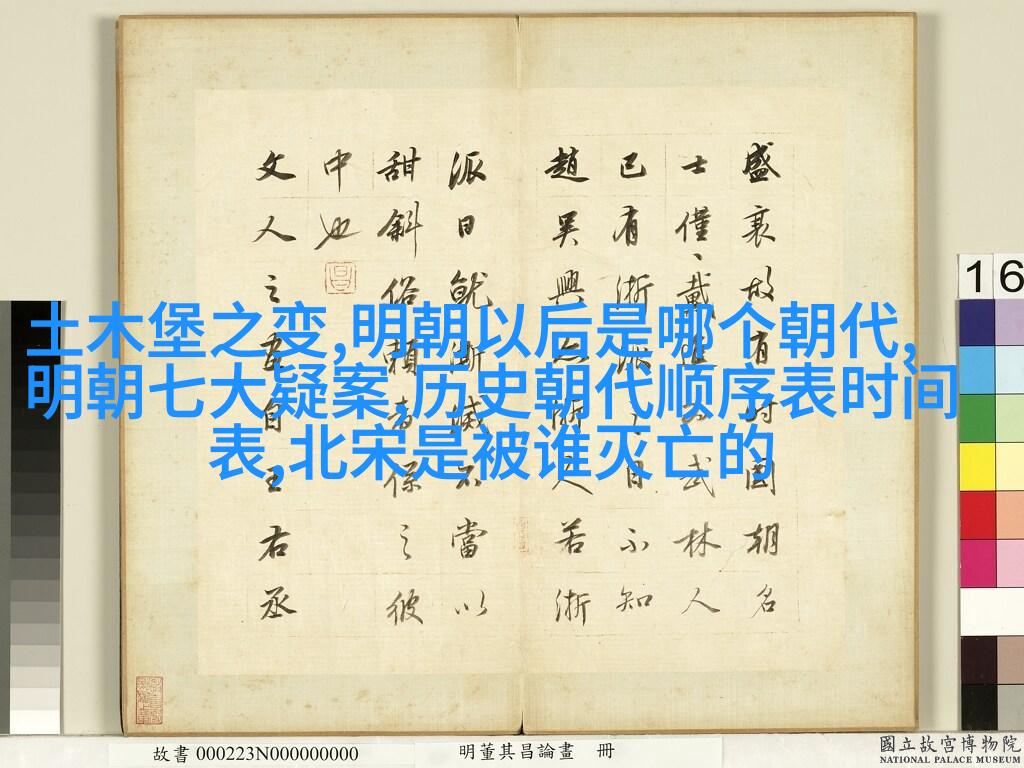 土木堡之变,明朝以后是哪个朝代,
明朝七大疑案,历史朝代顺序表时间
表,北宋是被谁灭亡的
盛衰故有時國朝名
士僅戴進為武林人
已有浙派之目不知
趙吳興亦浙人若浙
派日就澌滅不當以
甜斜俗賴者係之彼
中也
文人之畫自王右丞
16
故書 000223N000000000
明董其昌論畫 冊
國立故宮博物院
NATIONAL PALACE MUSEUM